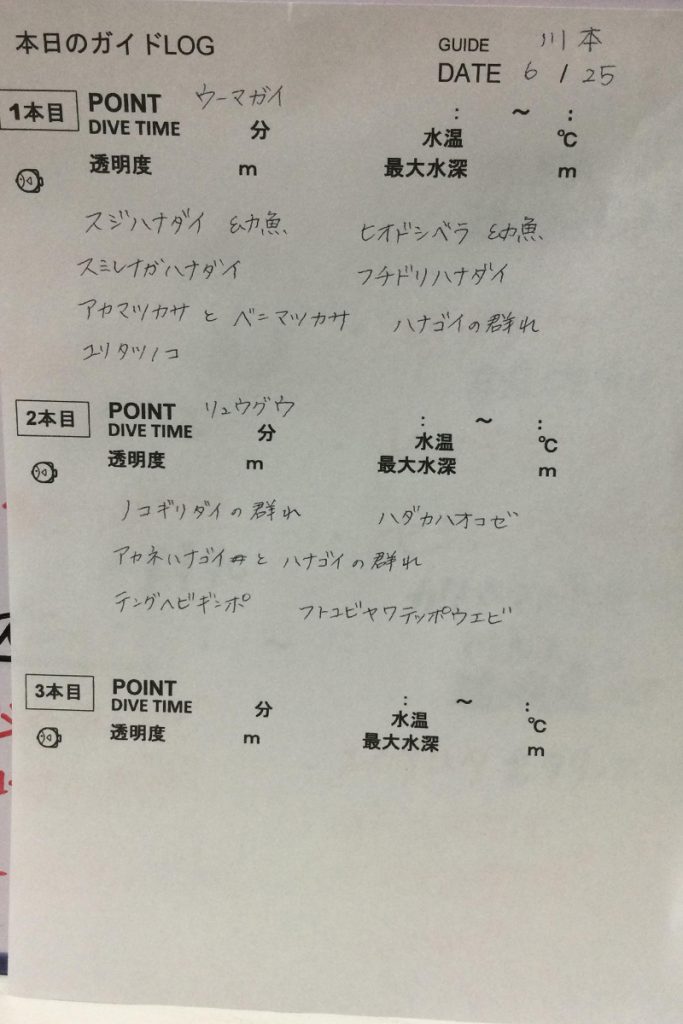 本日のガイドLOG
GUIDE 川本
DATE 6/25
1本目 POINT ウーマガイ
DIVE TIME 分 : ～ :
水温 ℃
透明度 m 最大水深 m
スジハナダイ 幼魚 ヒオドシベラ 幼魚
スミレナガハナダイ フチドリハナダイ
アカマツカサ と ベニマツカサ ハナゴイの群れ
ユリタツノコ
2本目 POINT リュウグウ
DIVE TIME 分 : ～ :
水温 ℃
透明度 m 最大水深 m
ノコギリダイの群れ ハダカハオコゼ
アカネハナゴイ と ハナゴイの群れ
テングヘビギンポ フトユビヤワテッポウエビ
3本目 POINT
DIVE TIME 分 : ～ :
水温 ℃
透明度 m 最大水深 m